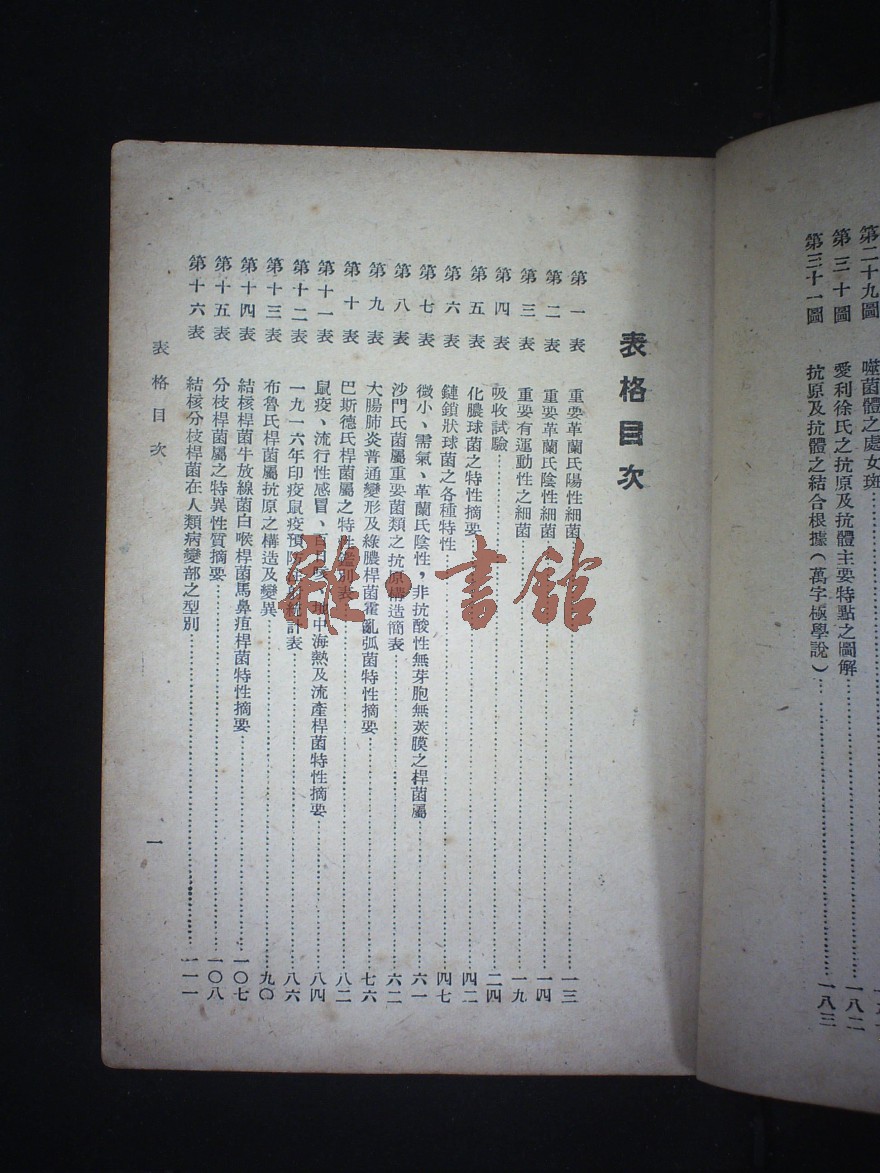 第二十九圖 噬菌體之處女斑
第三十圖 愛利徐氏之抗原及抗體主要特點之圖解 一八二
第三十一圖 抗原及抗體之結合根據(萬字極學說) 一八三
表格目次
第一表 重要革蘭氏陽性細菌 一三
第二表 重要革蘭氏陰性細菌 一四
第三表 重要有運動性之細菌 一九
第四表 吸收試驗 二四
第五表 化膿球菌之特性摘要 四二
第六表 鏈鎖狀球菌之各種特性 四七
第七表 微小、需氣、革蘭氏陰性,非抗酸性無芽胞無莢膜之桿菌屬 六一
第八表 沙門氏菌屬重要菌類之抗原構造簡表 六二
第九表 大腸肺炎普通變形及綠膿桿菌霍亂弧菌特性摘要 七六
第十表 巴斯德氏桿菌屬之特性鑑別表 八二
第十一表 鼠疫、流行性感冒、百日咳、地中海熱及流產桿菌特性摘要 八四
第十二表 一九一六年印疫鼠疫預防注射統計表 八六
第十三表 布魯氏桿菌屬抗原之構造及變異 九〇
第十四表 結核桿菌牛放線菌白喉桿菌馬鼻疽桿菌特性摘要 一〇七
第十五表 分枝桿菌屬之特異性質摘要 一〇八
第十六表 結核分枝桿菌在人類病變部之型別 一一一
表格目次
一
雅·書館